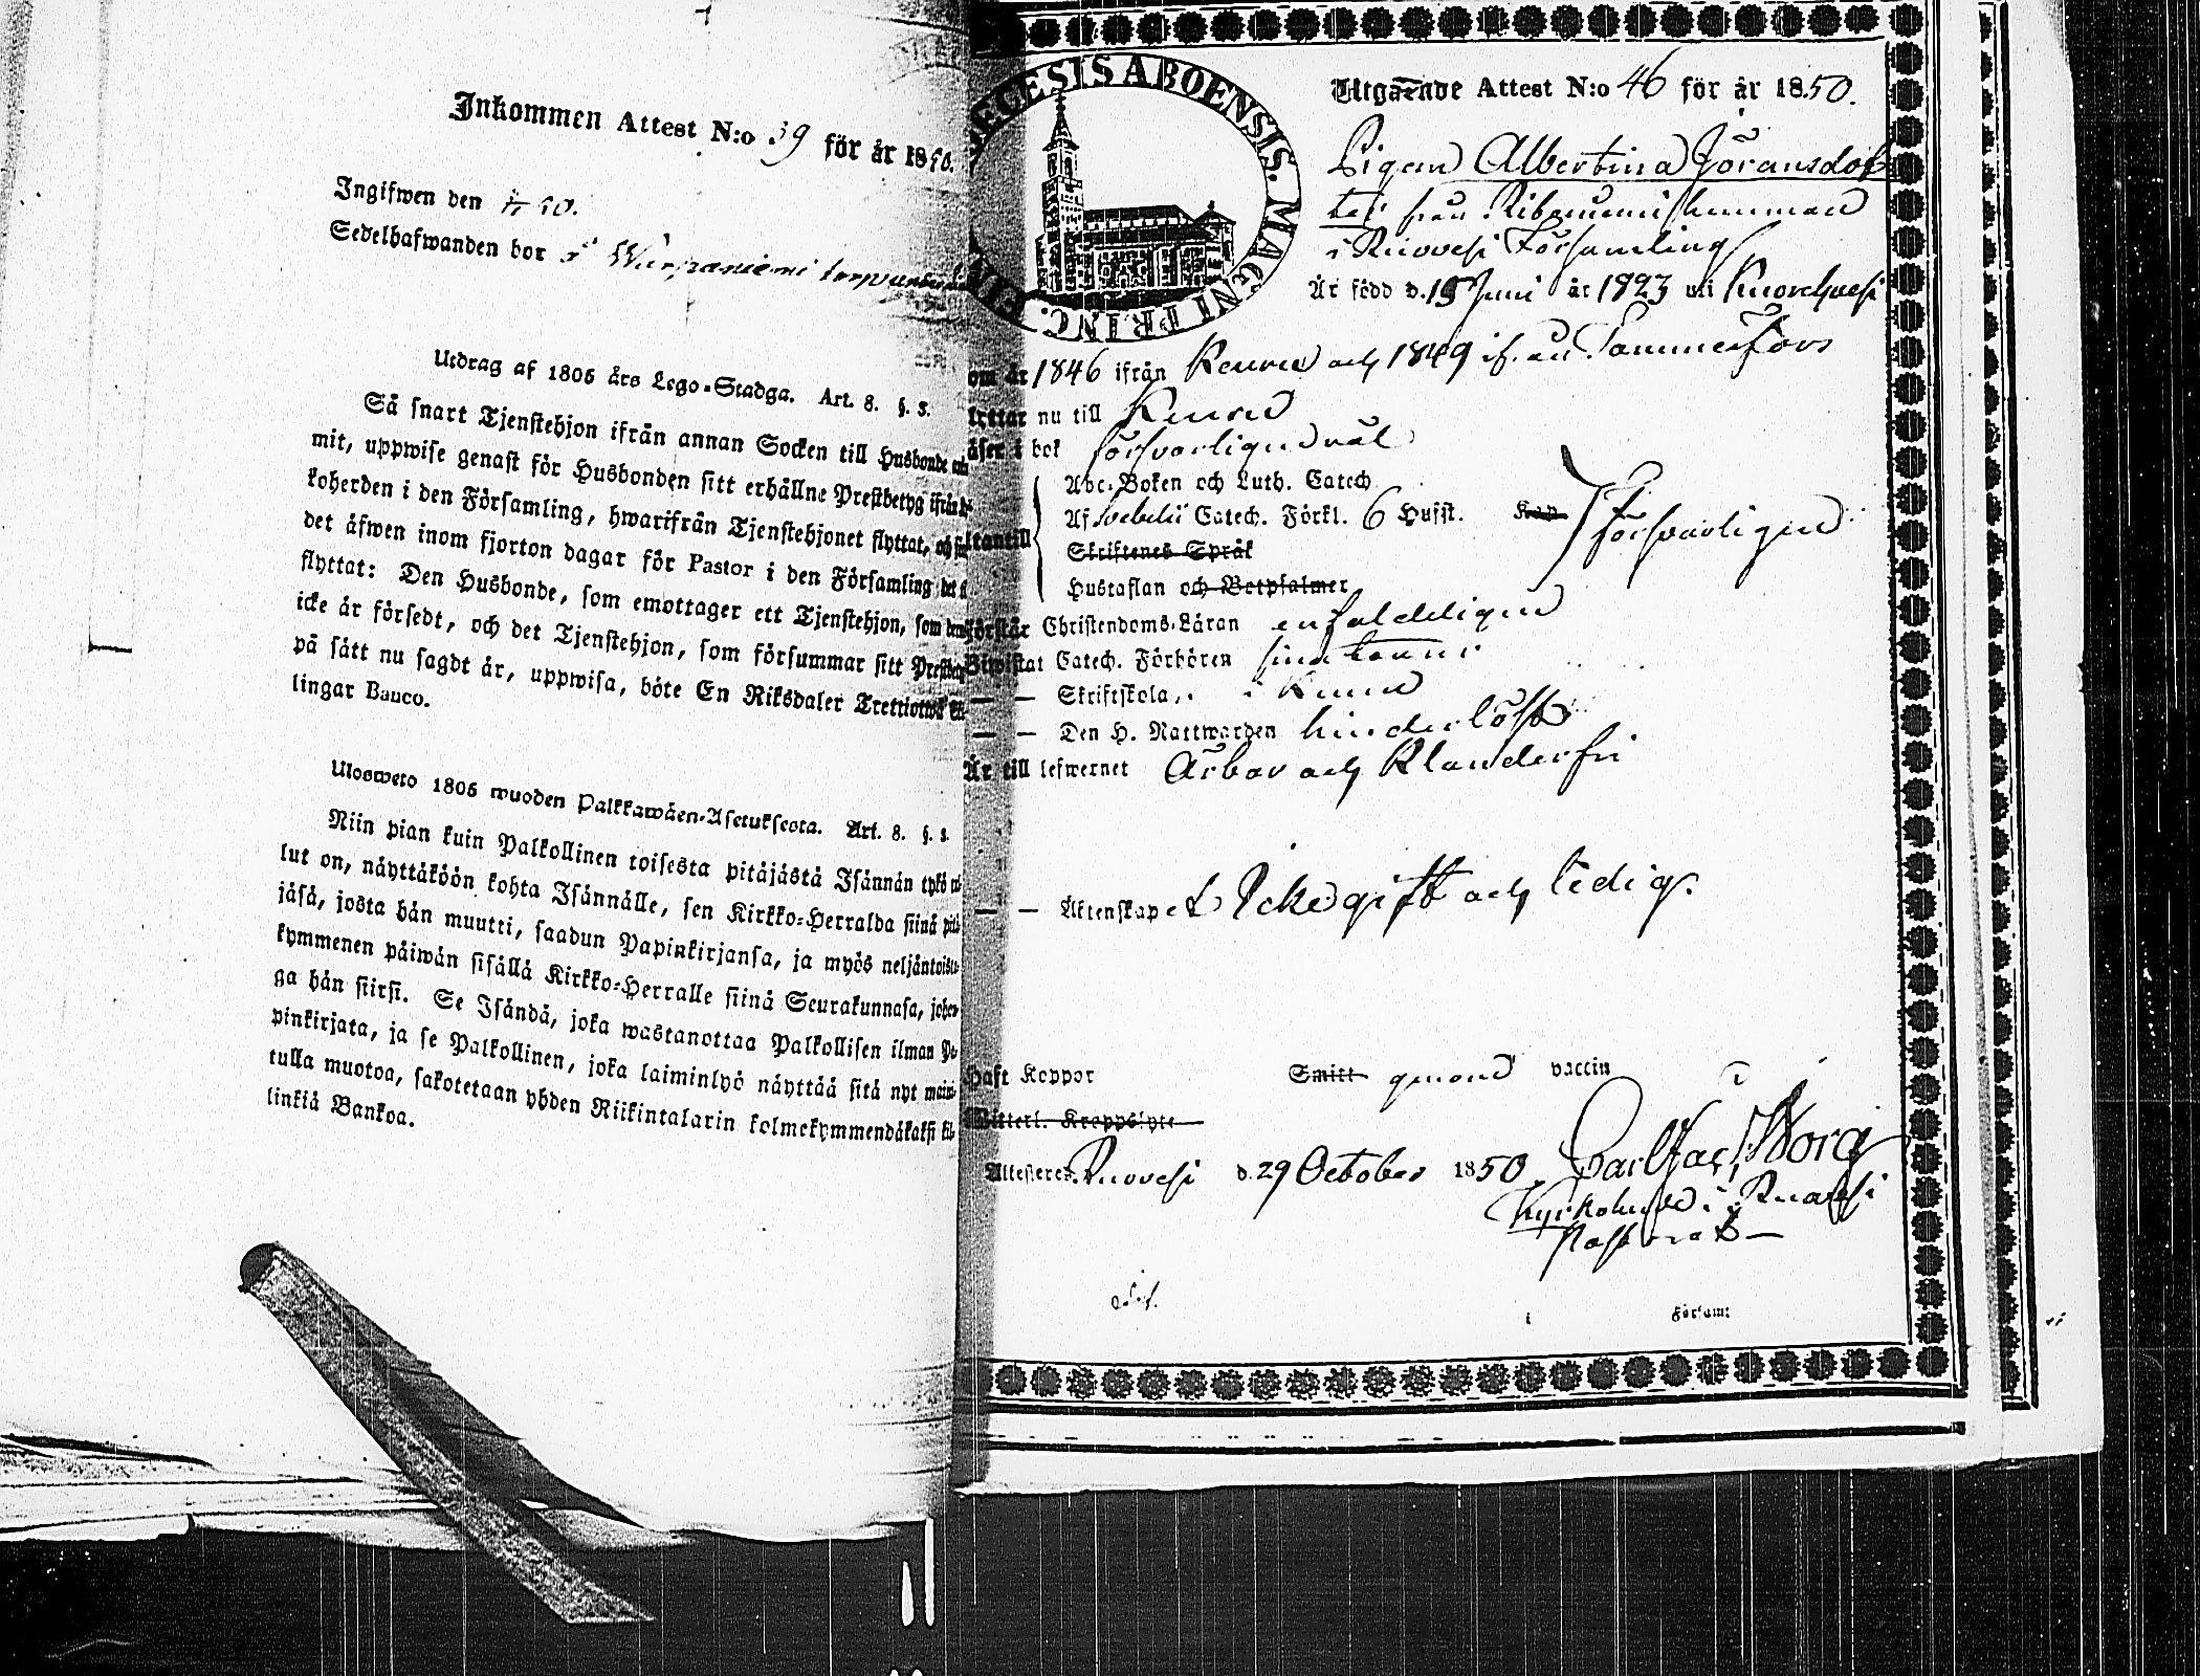 Inkommen Attest N:o 39 för år 1850.
Ingifwen den
Sedelhafwanden bor i
Utdrag af 1805 års Lego-Stadga. Art. 8. §. 3.
Så snart Tjenstehjon ifrån annan Socken till Husbonde
mit, uppwise genast för Husbonden sitt erhållne Prestbetyg ifrån
koherden i den Församling, hwarifrån Tjenstehjonet flyttat, och
det äfwen inom fjorton dagar för Pastor i den Församling det
flyttat: Den Husbonde, som emottager ett Tjenstehjon, som
icke är försedt, och det Tjenstehjon, som försummar sitt
på sätt nu sagdt är, uppwisa, böte En Riksdaler Trettiotwå
lingar Banco.
Ulosweto 1805 wuoden Palkkawäen-Asetuksesta. Art. 8. §. 3.
Niin pian kuin Palkollinen toisesta pitäjästä Isännän tykö
lut on, näyttäköön kohta Isännälle, sen Kirkko-Herralda siinä
jäsä, josta hän muutti, saadun Papinkirjansa, ja myös neljäntoista
kymmenen päiwän sisällä Kirkko-Herralle siinä Seurakunnasa, johon-
ga hän siirsi. Se Isändä, joka wastanottaa Palkollisen ilman Pa-
pinkirjata, ja se Palkollinen, joka laiminlyö näyttää sitä nyt
tulla muotoa, sakotetaan yhden Riikintalarin kolmekymmendäkaksi
linkiä Bankoa.
ECESIS ABOENSIS. MAGNI PRINC.
Utgående Attest N:o 46 för år 1850.
Pigan Albertina Jöransdot
ter från
i Ruovesi Församling
Är född d. 19 Juni år 1823 uti Kuorehvesi
om år 1846 ifrån Keuru och 1849 ifrån Tammerfors
nu till Keuru
i bok försvarligen väl
Abc-Boken och Luth. Catech.
Af Svebelii Catech. Förkl. 6 Hufst.
Skriftenes Språk
försvarligen
Hustaflan och Botpsalmer
Förstår Christendoms-Läran enfaldeligen
Biwistat Catech. Förhören
— — Skriftskola, i Keuru
— — Den H. Nattwarden hinderlöst
Är till lefwernet Ärbar och Klanderfri
— — Äktenskapet Icke gift och ledig.
Haft Koppor Smitt genom vaccin
Witterl. Kroppslyte
Attesterer Ruovesi d. 29 October 1850
Kyrkoherde i Ruovesi
Pastorat
i Församl